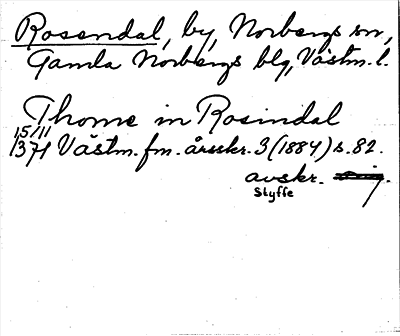 Rosendal, by, Norbergs sn,
Gamla Norbergs blg, Västm. l.
Thome in Rosindal
15/11
1371 Västm. fm. årsskr. 3 (1884) s. 82.
avskr.
Styffe